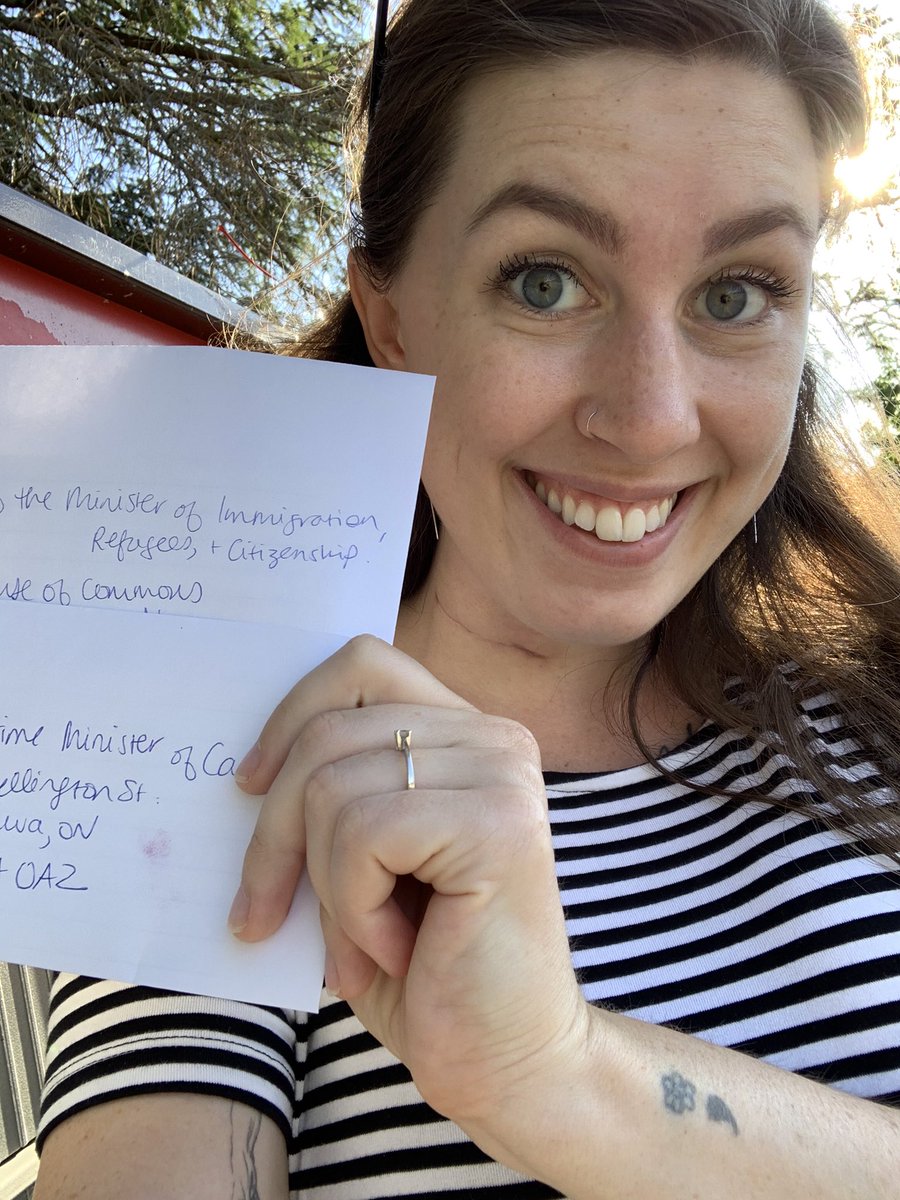 the Minister of Immigration,
Refugees, + Citizenship.
use of Commons
ime Minister of Ca
ellington St.
wa, ON
OA2